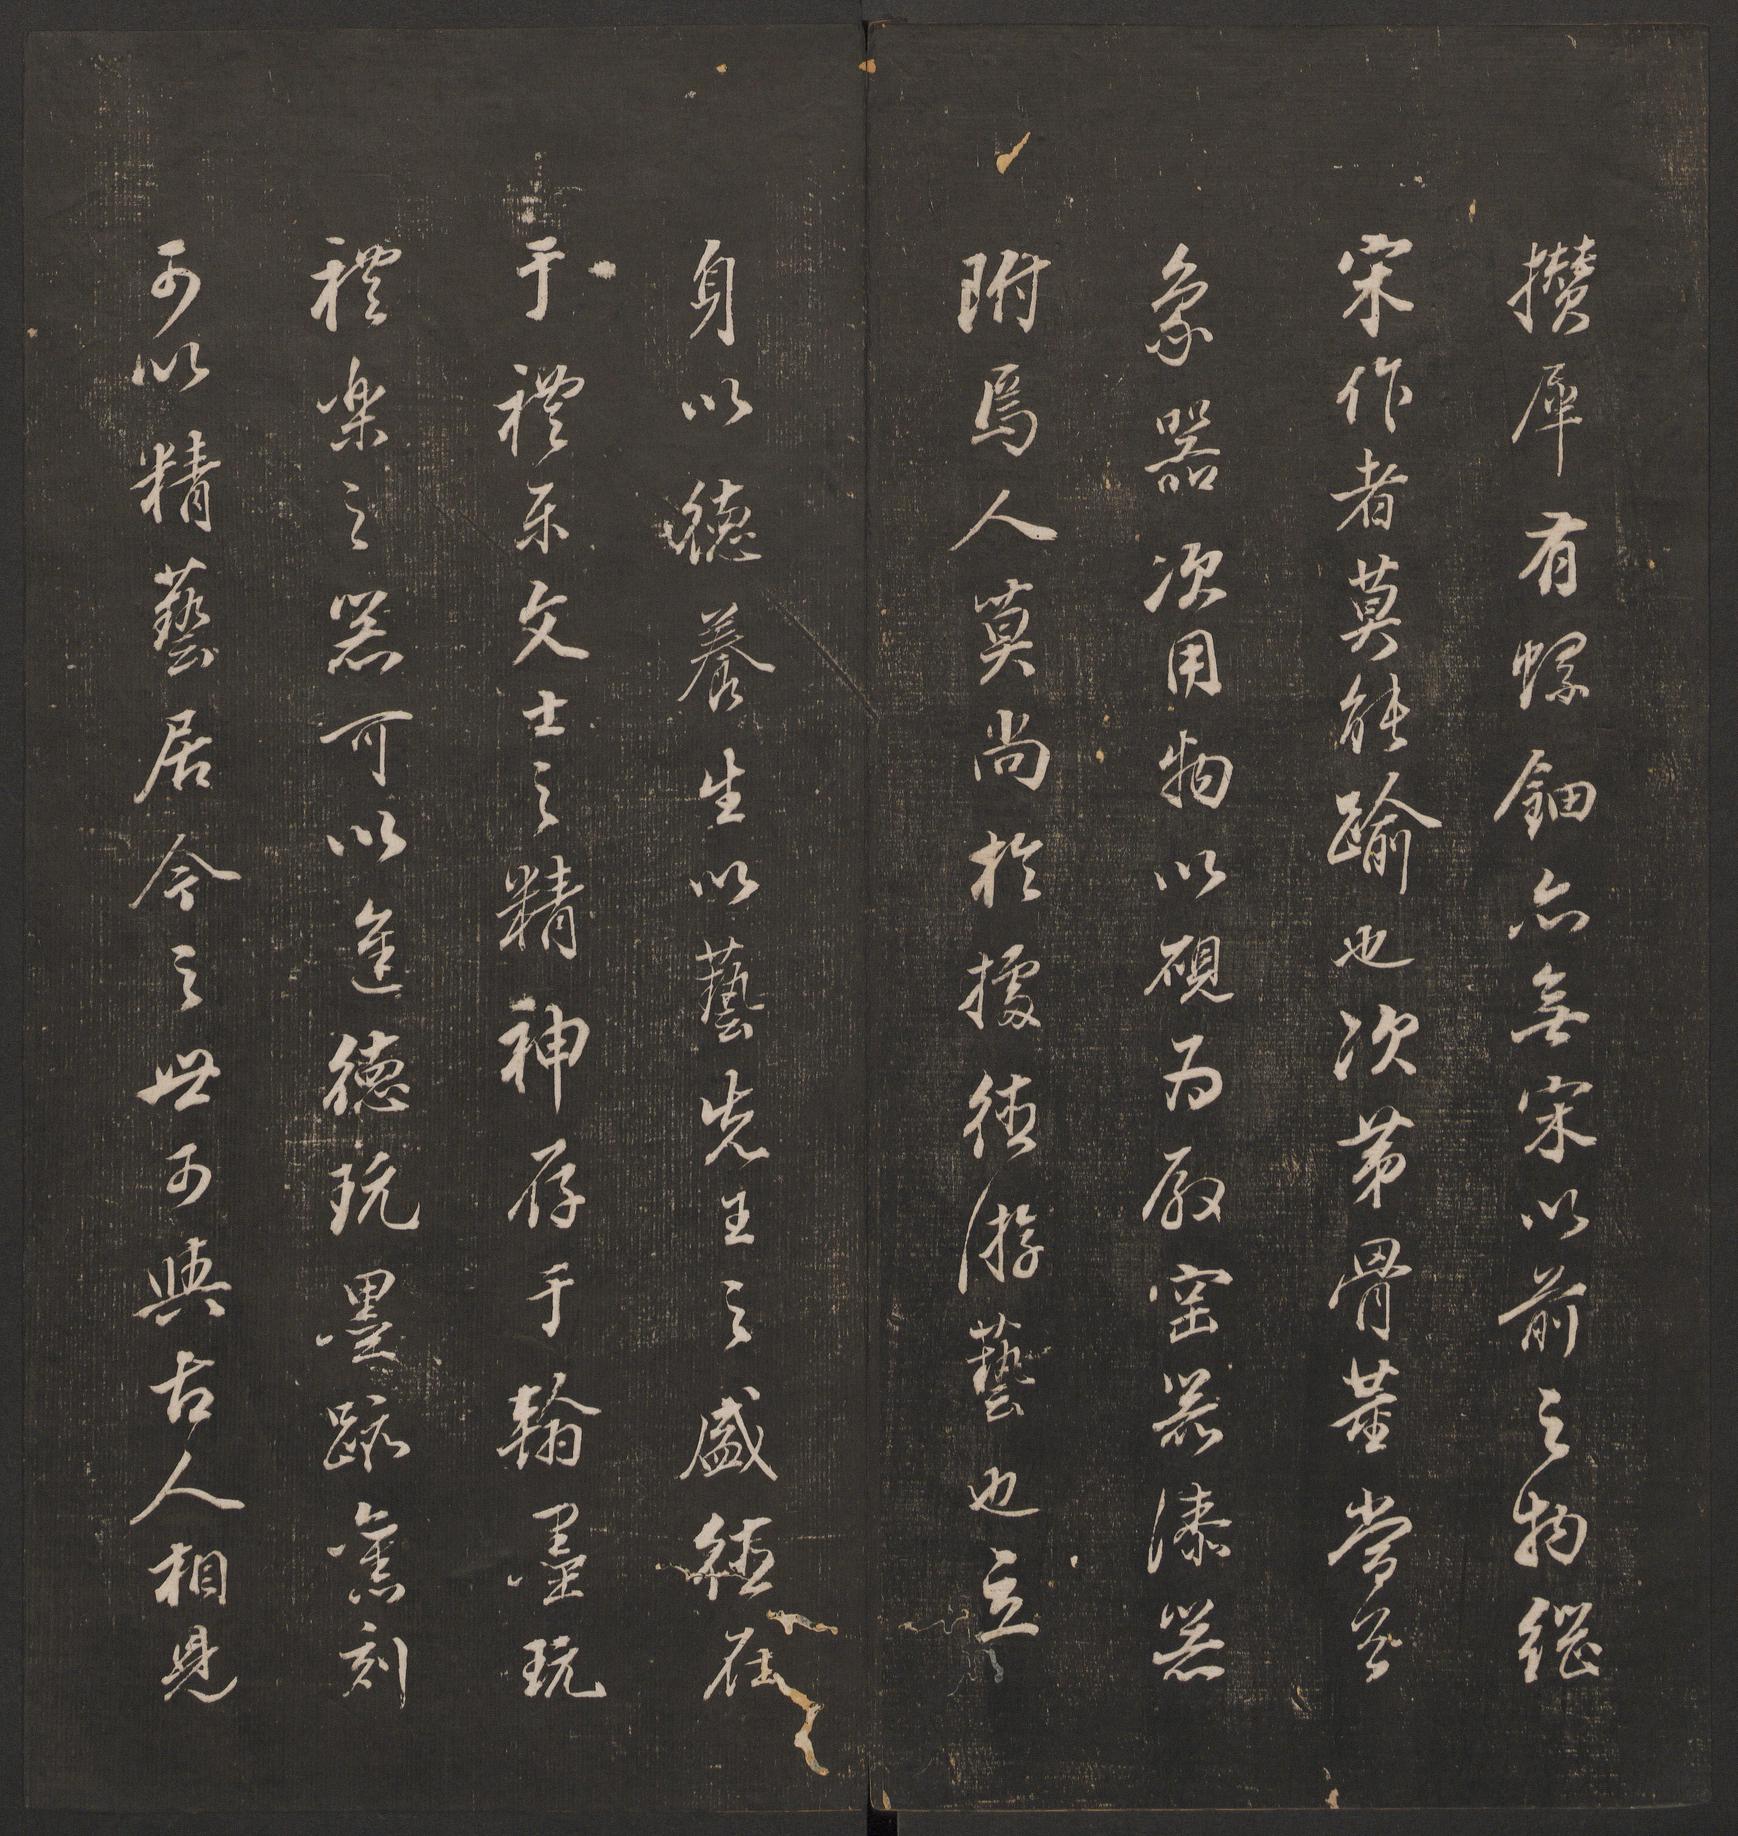 攢犀有螺鈿亦無宋以前之物繼
宋作者莫能踰也次第骨董當
象器次用物以硯為殿窑器漆器
附焉人莫尚於據德游藝也立
身以德養生以藝先王之盛德在
于禮樂文士之精神存于翰墨玩
禮樂之器可以進德玩墨跡舊刻
可以精藝居今之世可與古人相見